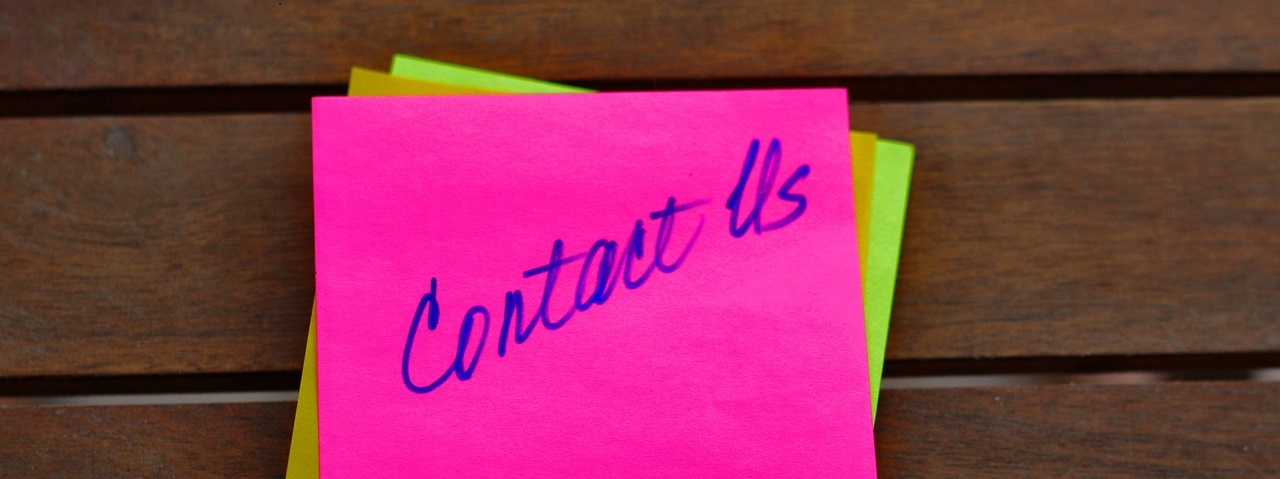 Contact Us